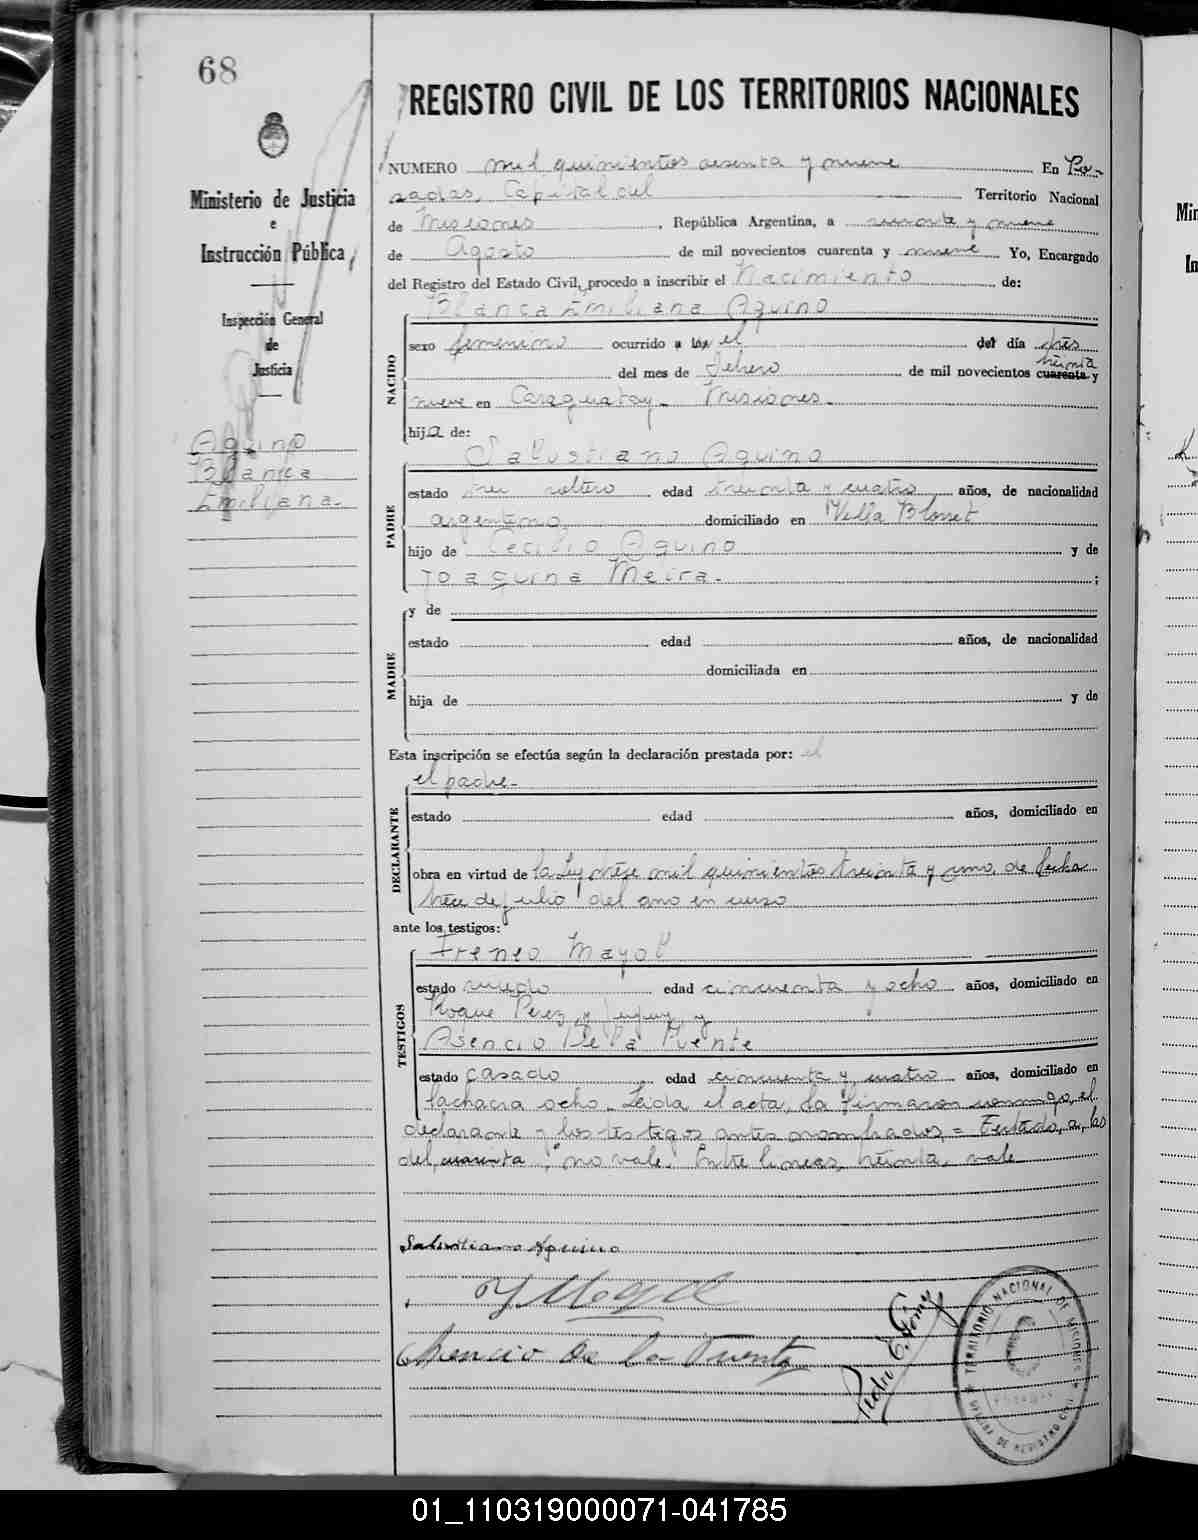 68
REGISTRO CIVIL DE LOS TERRITORIOS NACIONALES
Ministerio de Justicia
e
Instrucción Pública
Inspección General
de
Justicia
Aquino
Blanca
Emiliana.
NUMERO mil quinientos sesenta y nueve En Po-
sadas, Capital del Territorio Nacional
de Misiones, República Argentina, a y nueve
de Agosto de mil novecientos cuarenta y nueve Yo, Encargado
del Registro del Estado Civil, procedo a inscribir el Nacimiento de:
NACIDO
Blanca Emiliana Aquino
sexo femenino ocurrido a las el del día tres
treinta
del mes de febrero de mil novecientos cuarenta y
nueve en Caraguatay - Misiones.
hija de:
PADRE
Salustiano Aquino
estado soltero edad treinta y cuatro años, de nacionalidad
argentino domiciliado en Villa Blosset
hijo de Cecilio Aquino y de
Joaquina Meira. ;
MADRE
y de
estado edad años, de nacionalidad
domiciliada en
hija de y de
Esta inscripción se efectúa según la declaración prestada por: el
DECLARANTE
el padre.
estado edad años, domiciliado en
obra en virtud de la Ley trece mil quinientos treinta y uno, de fecha
trece de julio del año en curso
ante los testigos:
TESTIGOS
Ireneo Mayol
estado viudo edad cincuenta y ocho años, domiciliado en
Roque Perez y Jujuy, y
Asencio De la Puente
estado casado edad cincuenta y cuatro años, domiciliado en
la chacra ocho. Leída el acta, la firmaron conmigo, el
declarante y los testigos antes nombrados, = Testado, a, las
del, cuarenta, "no vale. Entre lineas, treinta, vale
Salustiano Aquino
Asencio de la Puente
TERRITORIO NACIONAL DE MISIONES
OFICINA DE REGISTRO CIVIL
01_110319000071-041785